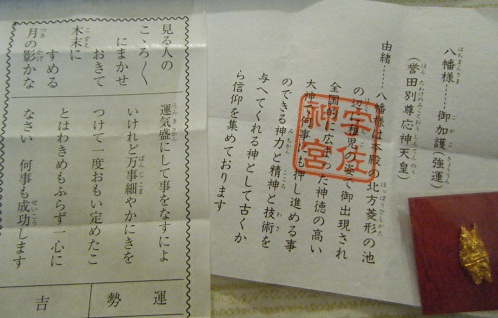 八幡様……御加護強運
(誉田別尊応神天皇)
由緒……八幡様は本殿の北方菱形の池
の辺に稚児の姿で御出現され
全国的に広まった神徳の高い
大神で何事にも押し進める事
のできる神力と精神と技術を
与へてくれる神として古くか
ら信仰を集めております
宇佐
神宮
見る人の
こゝろ〱
にまかせ
おきて
木末に
すめる
月の影かな
運気盛にして事をなすによ
いけれど万事細やかにきを
つけて一度おもい定めたこ
とはわきめもふらず一心に
なさい 何事も成功します
運勢
吉